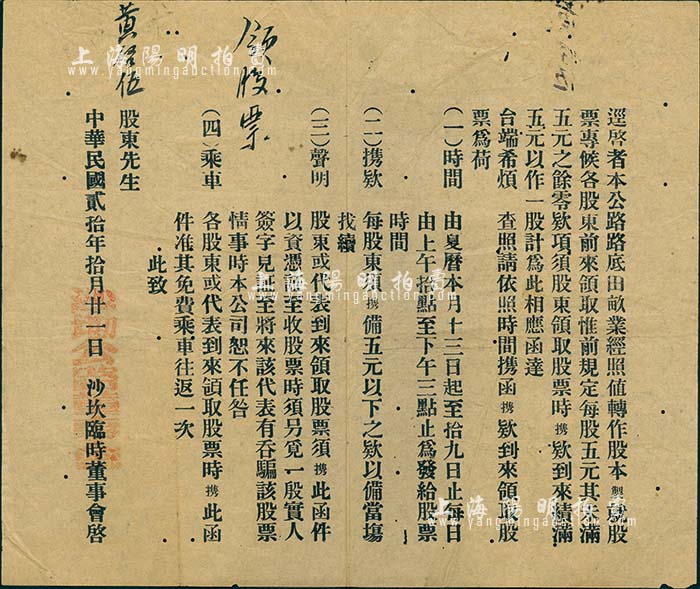 逕啓者本公路路底田畝業經照值轉作股本製成股
票專候各股東前來領取惟前規定每股五元其不滿
五元之餘零欵項須股東領取股票時携欵到來續滿
五元以作一股計為此相應函達
台端希煩 查照請依照時間携函携欵到來領取股
票為荷
(一)時間 由夏曆本月十三日起至拾九日止每日
由上午拾點至下午三點止為發給股票
時間
(二)携欵 每股東須携備五元以下之欵以備當塲
找續
(三)聲明 股東或代表到來領取股票須携此函件
以資憑証至收股票時須另覓一殷實人
簽字見証至將來該代表有吞騙該股票
情事時本公司恕不任咎
(四)乘車 各股東或代表到來領取股票時携此函
件准其免費乘車往返一次
此致
股東先生
中華民國貳拾年拾月廿一日 沙坎臨時董事會啓
領股票
黃
上海陽明拍賣
www.yangmingauction.com
上海陽明拍賣
www.yangmingauction.com
上海陽明拍賣
www.yangmingauction.com
上海陽明拍賣
www.yangmingauction.com